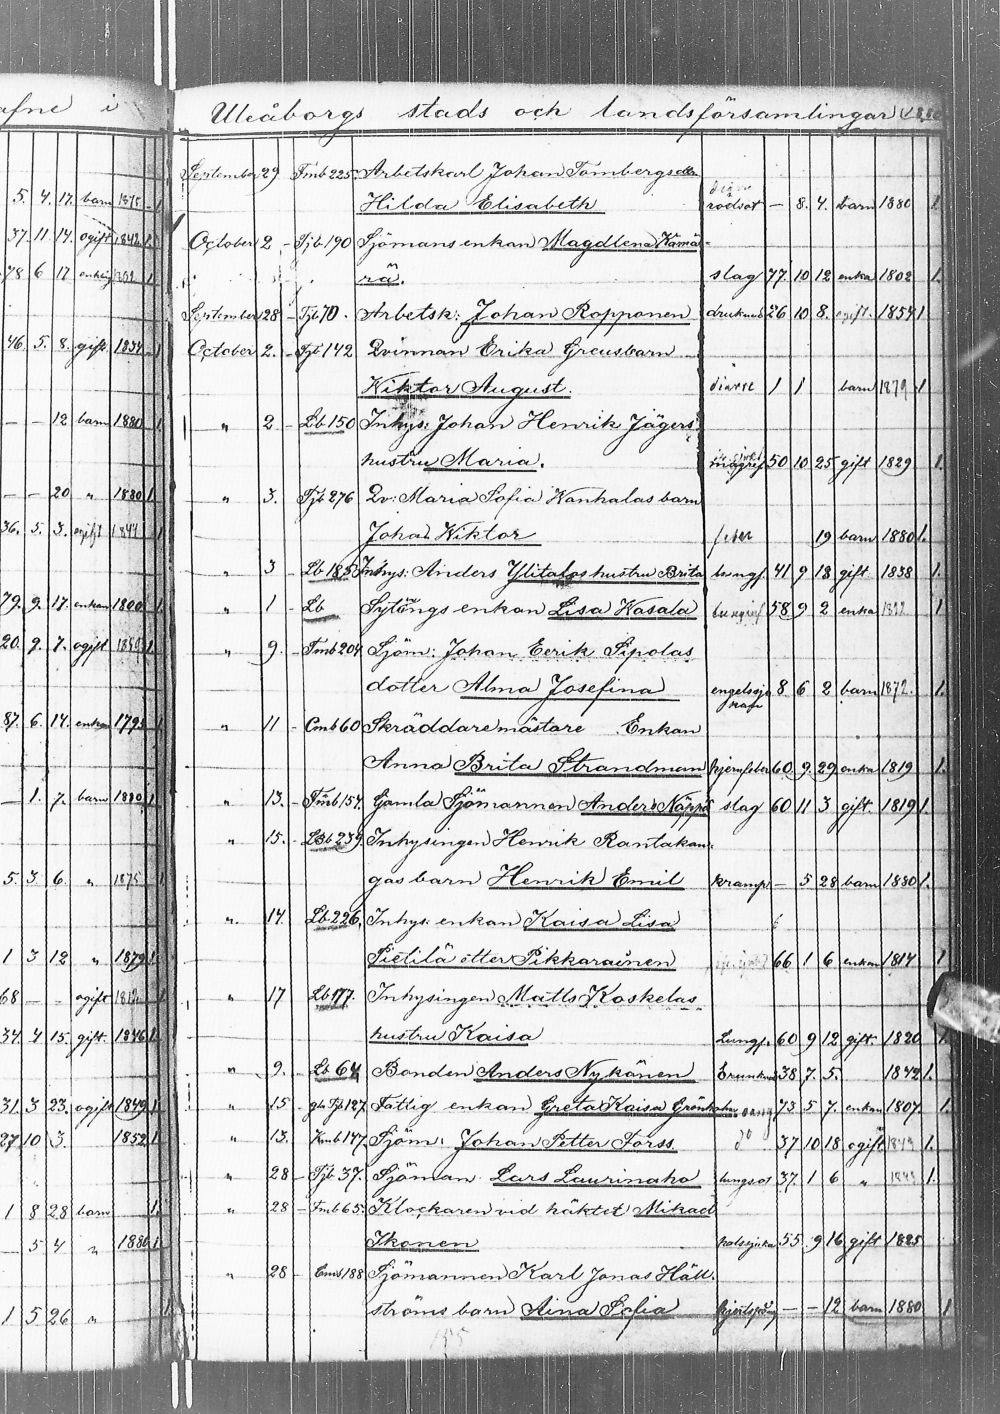 afne i
5. 4. 17. barn 1875 - 1
37. 11 14. ogift 1842. 1.
78 6 17 enkling 1802 1.
46. 5. 8. gift 1834 - 1
- - 12 barn 1880 1
- - 20 " 1880 1.
36. 5. 3. ogift 1844 1
79. 9. 17. enkan 1800 1
20. 9. 7. ogift 1859 1.
87. 6. 14. enkan 1793 1
- 1. 7. barn 1880 1
5. 3. 6. " 1875 1
1 3 12 " 1879 1.
68 - - ogift 1812
34. 4 15. gift. 1846 1.
31. 3 23. ogift 1849 1.
27 10 3. 1852 1.
1 8 28 barn 1.
5 4 " 1880 1.
1 5 26 "
Uleåborgs stads och landsförsamlingar 1880
September 29 Tmb 225. Arbetskarl Johan Tömbergs dtr
Hilda Elisabeth rödsot - 8. 4. barn 1880 1.
October 2 - Tjb 190 Sjömans enkan Magdlena Kämä-
rä. slag 77. 10 12 enka 1802 1.
September 28 - Tjb 70. Arbetsk: Johan Ropponen drunknad 26 10 8. ogift. 1854 1
October 2. - Tjb 142 Qvinnan Erika Greus barn
Wiktor August. diarré 1 1 barn 1879 1
" 2 - Lb 150 Inhys: Johan Henrik Jägers
hustru Maria. magref 50 10 25 gift 1829 1.
" 3. Tjb 276 Qv: Maria Sofia Kanhalas barn
Johan Wiktor feber 19 barn 1880 1.
" 3 - Lb 185 Inhys: Anders Ylitalos hustru Brita lungf. 41 9 18 gift 1838 1.
" 1 - Lb Sytöings enkan Lisa Kasala 58 9 2 enka 1822 1
" 9. - Tmb 204 Sjöm: Johan Eerik Sipolas
dotter Alma Josefina engelssju
kan 8. 6 2 barn 1872. 1.
" 11 - Cmb 60 Skräddaremästare Enkan
Anna Brita Strandman hjernfeber 60. 9. 29 enka 1819 1.
" 13. - Tmb 154. Gamla Sjömannen Anders Näppä slag 60 11 3 gift. 1819 1.
" 15. - Lb 239 Inhysingen Henrik Rantakan-
gas barn Henrik Emil kramp. - 5 28 barn 1880 1.
" 14. Lb 226, Inhys: enkan Kaisa Lisa
Pietilä etter Pikkarainen 66 1 6 enkan 1814 1
" 17 Lb 177. Inhysingen Matts Koskelas
hustru Kaisa Lungf. 60 9 12 gift. 1820 1
" 9. - Lb 64 Bonden Anders Nykönen Drunknad 38 7. 5. 1842 1.
" 15 - gla Tjb 127. Fattig enkan Greta Kaisa Grönholm 73 5 7. enkan 1807. 1.
" 13. Kmb 147. Sjöm: Johan Petter Forss do 37 10 18 ogift 1843 1.
" 28 - Tjb 37. Sjöman Lars Laurinaho lungsot 37. 1 6 " 1843 1.
" 28 - Tmb 65. Klockaren vid häktet Mikael
Ikonen halssjuka 55. 9 16 gift 1825
" 28 - Cmb 188 Sjömannen Karl Jonas Häll-
ströms barn Aina Sofia - - 12 barn 1880 1
185